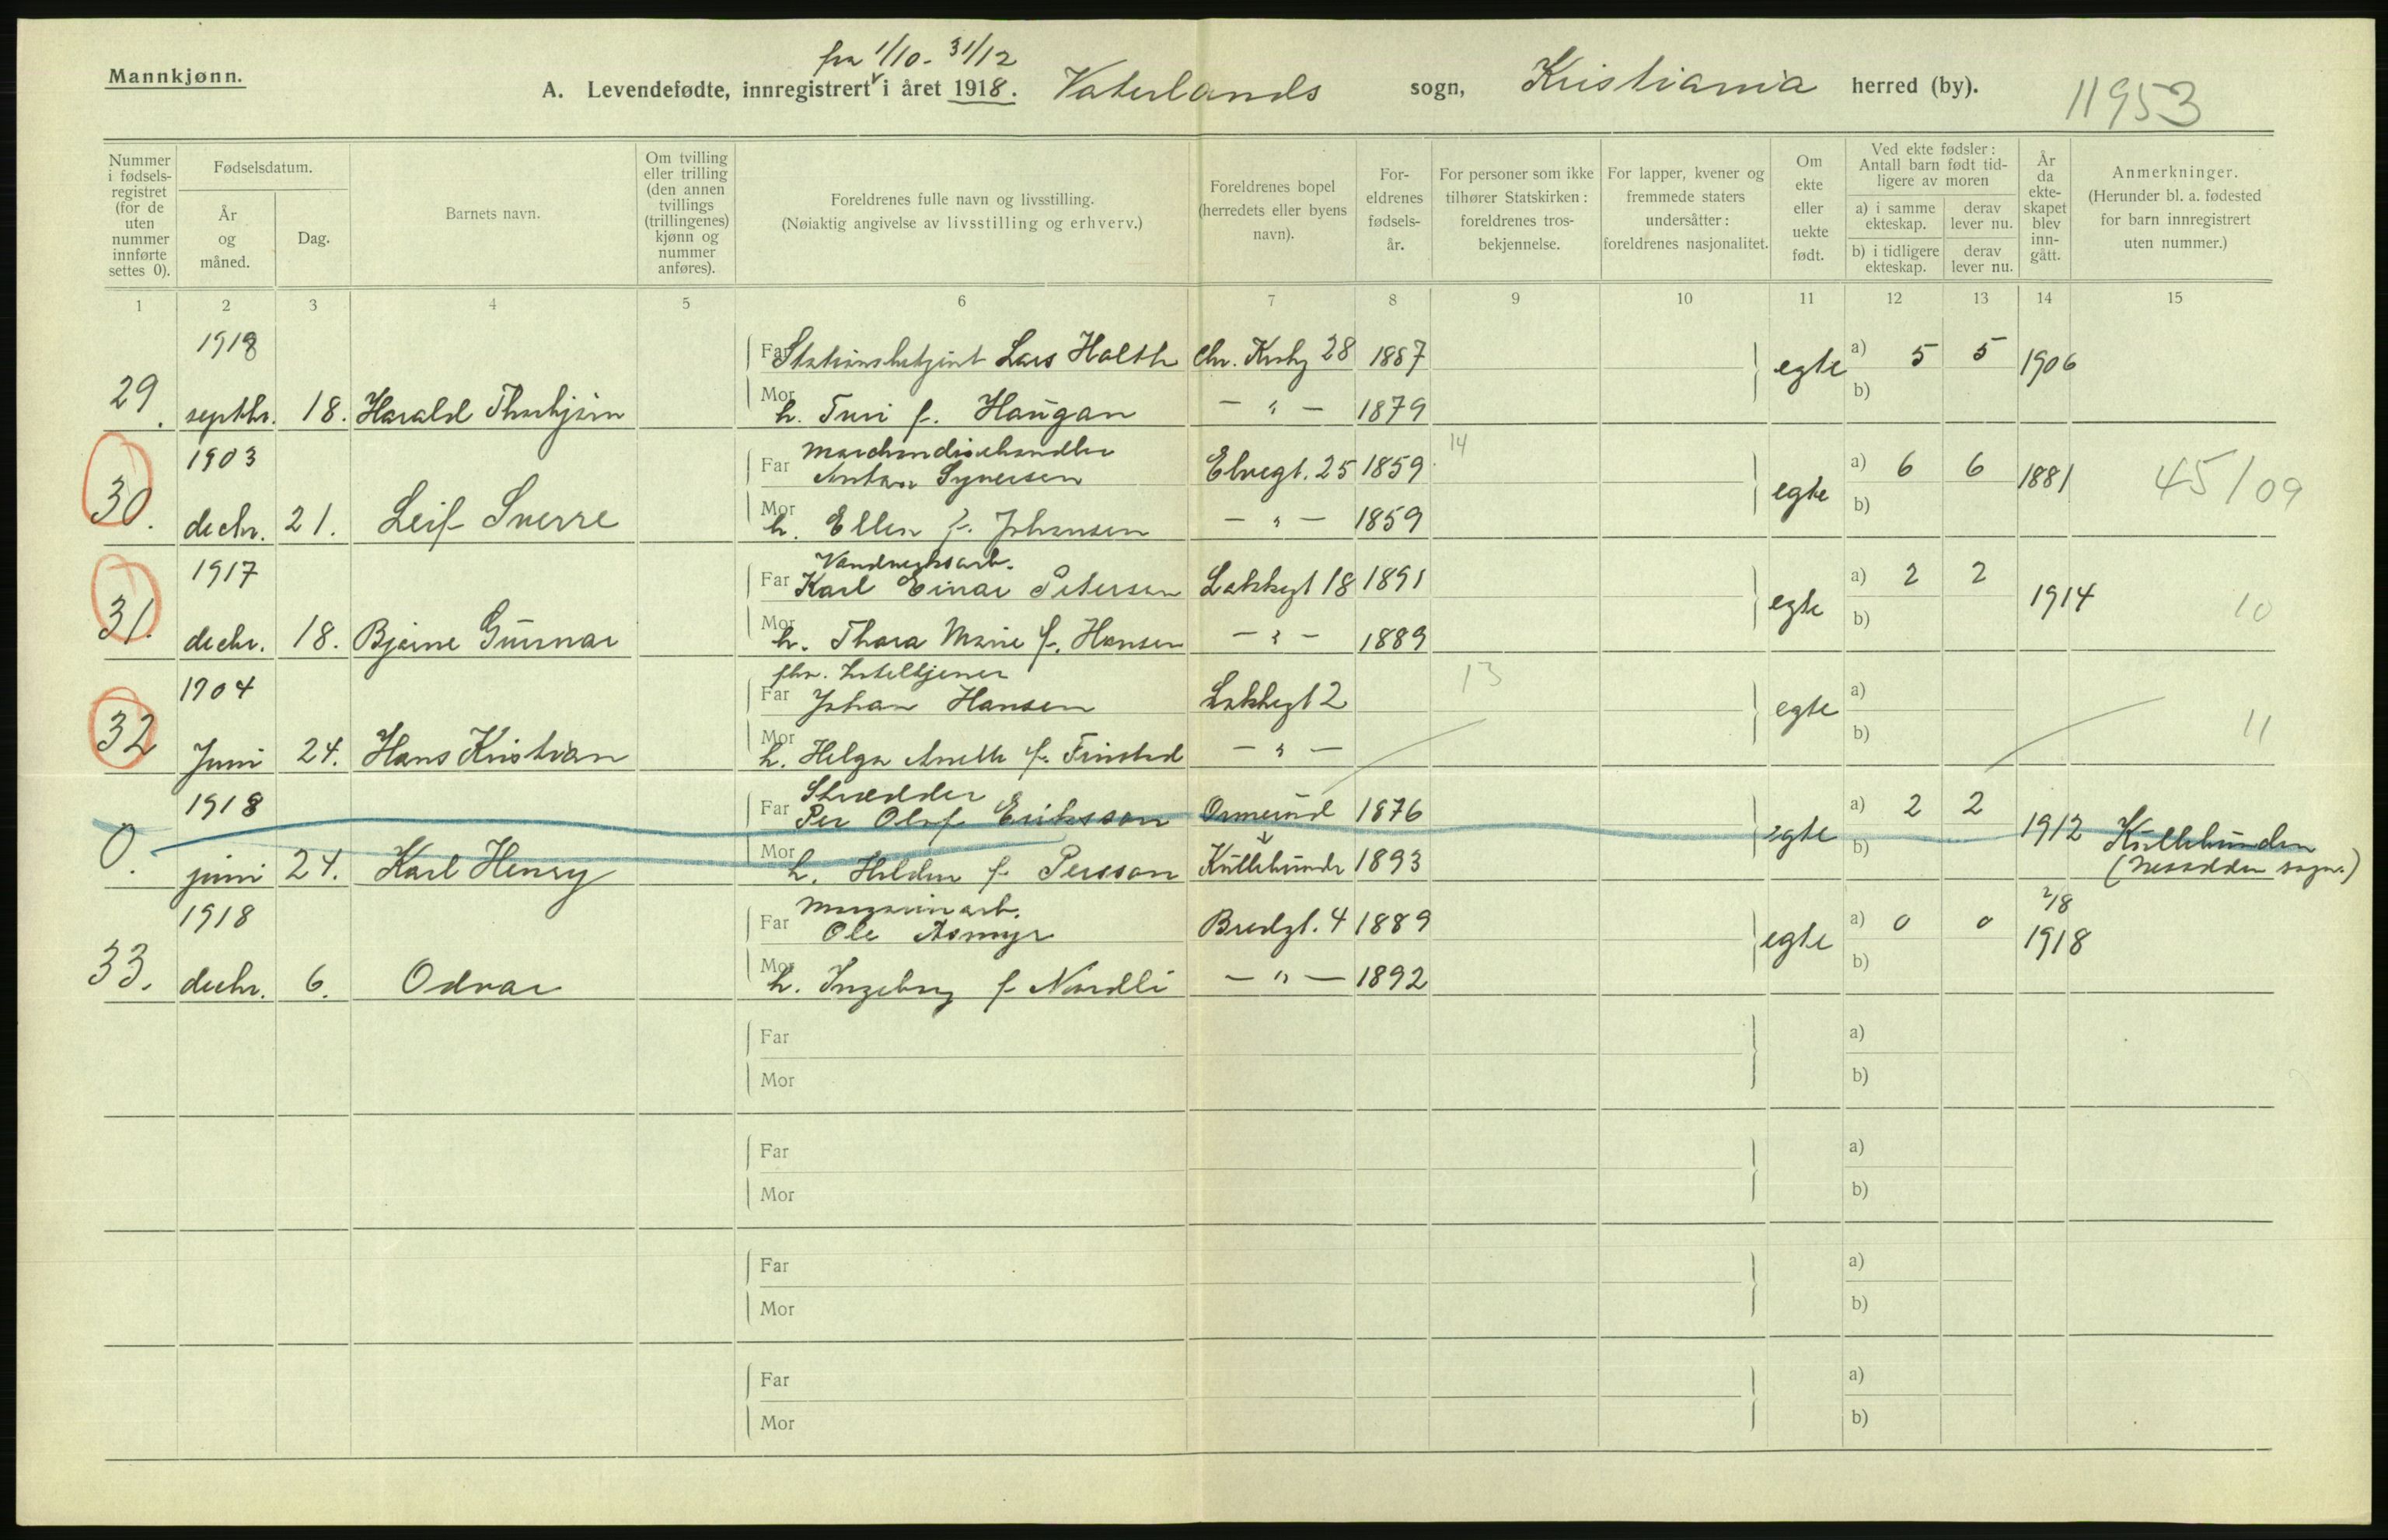 fra 1/10 - 31/12
Mannkjønn.
A. Levendefødte, innregistrert i året 1918. Vaterlands sogn, Kristiania herred (by).
11953
Nummer i fødsels-registret (for de uten nummer innførte settes 0).
Fødselsdatum.
År og måned.
Dag.
Barnets navn.
Om tvilling eller trilling (den annen tvillings (trillingenes) kjønn og nummer anføres).
Foreldrenes fulle navn og livsstilling.
(Nøiaktig angivelse av livsstilling og erhverv.)
Foreldrenes bopel (herredets eller byens navn).
For-eldrenes fødsels-år.
For personer som ikke tilhører Statskirken: foreldrenes tros-bekjennelse.
For lapper, kvener og fremmede staters undersåtter: foreldrenes nasjonalitet.
Om ekte eller uekte født.
Ved ekte fødsler: Antall barn født tid-ligere av moren
a) i samme ekteskap. derav lever nu.
b) i tidligere ekteskap. derav lever nu.
År da ekte-skapet blev inn-gått.
Anmerkninger.
(Herunder bl. a. fødested for barn innregistrert uten nummer.)
1 2 3 4 5 6 7 8 9 10 11 12 13 14 15
1918 Far Stationsbetjent Lars Holth Chr. Krohg 28 1887 egte a) 5 5 1906
29. septbr. 18. Harald Thorbjørn Mor h. Turi f. Haugan - " - 1879 b)
1903 Far Marchandisehandler Anton Syversen Elvegt. 25 1859 14 egte a) 6 6 1881 45/09
30. decbr. 21. Leif Sverre Mor h. Ellen f. Johansen - " - 1859 b)
1917 Far Vandverksarb. Karl Einar Petersen Lakkegt 18 1891 egte a) 2 2 1914 10
31. decbr. 18. Bjarne Gunnar Mor h. Thora Marie f. Hansen - " - 1889 b)
1904 Far fhv. Hoteltjener Johan Hansen Lakkegt 2 13 egte a)
32 Juni 24. Hans Kristian Mor h. Helga Anette f. - " - b) 11
1918 Far Skrædder Per Olof Eriksson Ormerud 1876 egte a) 2 2 1912
0. juni 24. Karl Henry Mor h. Hilda f. Persson 1893 b) (Nesodden sogn.)
1918 Far Magasinarb. Ole Bredgt. 4 1889 egte a) 0 0 2/8 1918
33. decbr. 6. Odvar Mor h. Ingeborg f. Nordli - " - 1892 b)
Far a)
Mor b)
Far a)
Mor b)
Far a)
Mor b)
Far a)
Mor b)